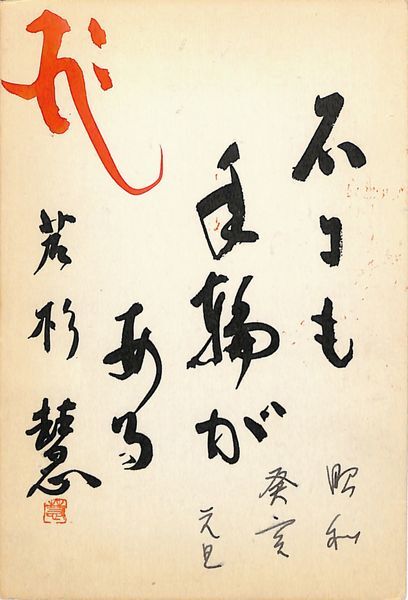 石にも
年輪が
ある
昭和
癸亥
元旦
若杉慧
慧